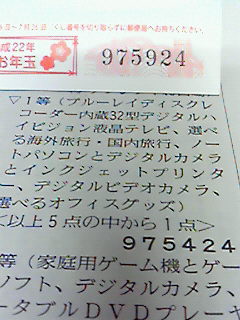 くじ番号を切り取らずに郵便局へお持ちください。
平成22年
お年玉
975924
▽1等（ブルーレイディスクレ
コーダー内蔵32型デジタルハ
イビジョン液晶テレビ、選べ
る海外旅行・国内旅行、ノー
トパソコンとデジタルカメラ
とインクジェットプリンタ
ー、デジタルビデオカメラ、
選べるオフィスグッズ）
＜以上5点の中から1点＞
975424
等（家庭用ゲーム機とゲー
ソフト、デジタルカメラ、
ータブルDVDプレーヤ